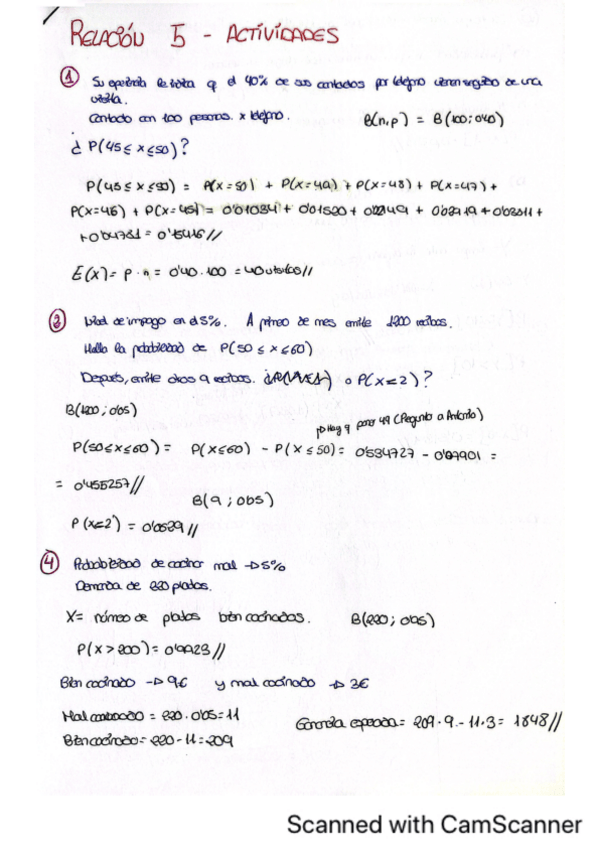 RELACIÓN 5 - ACTIVIDADES
① Su experiencia le indica q el 40% de sus contactados por teléfono vienen seguidos de una
visita.
Contacto con 100 personas x teléfono. B(n,p) = B(100; 0'40)
¿ P(45 ≤ x ≤ 50)?
P(45 ≤ x ≤ 50) = P(x=50) + P(x=49) + P(x=48) + P(x=47) +
P(x=46) + P(x=45) = 0'01034 + 0'01520 + +
+ 0'04781 = //
E(X) = p · n = 0'40 · 100 = 40 visitas//
de impago en el 5%. A primero de mes emite 1200 recibos.
Halla la probabilidad de P(50 ≤ x ≤ 60)
Después, emite otros 9 recibos. o P(x=2)?
B(1200; 0'05)
Hay q poner 49 (Pregunto a Antonio)
P(50≤x≤60) = P(x≤60) - P(x≤50) = 0'534727 - =
= 0'455257//
B(9; 0'05)
P(x=2) = 0'0629//
④ Probabilidad de cocinar mal → 5%
Demanda de 220 platos.
X = número de platos bien cocinados. B(220; 0'95)
P(x > 200) = 0'9923//
Bien cocinado → 9€ y mal cocinado → 3€
Mal cocinado = 220 · 0'05 = 11 Ganancia esperada = 209 · 9 - 11 · 3 = 1848//
Bien cocinado = 220 - 11 = 209
Scanned with CamScanner